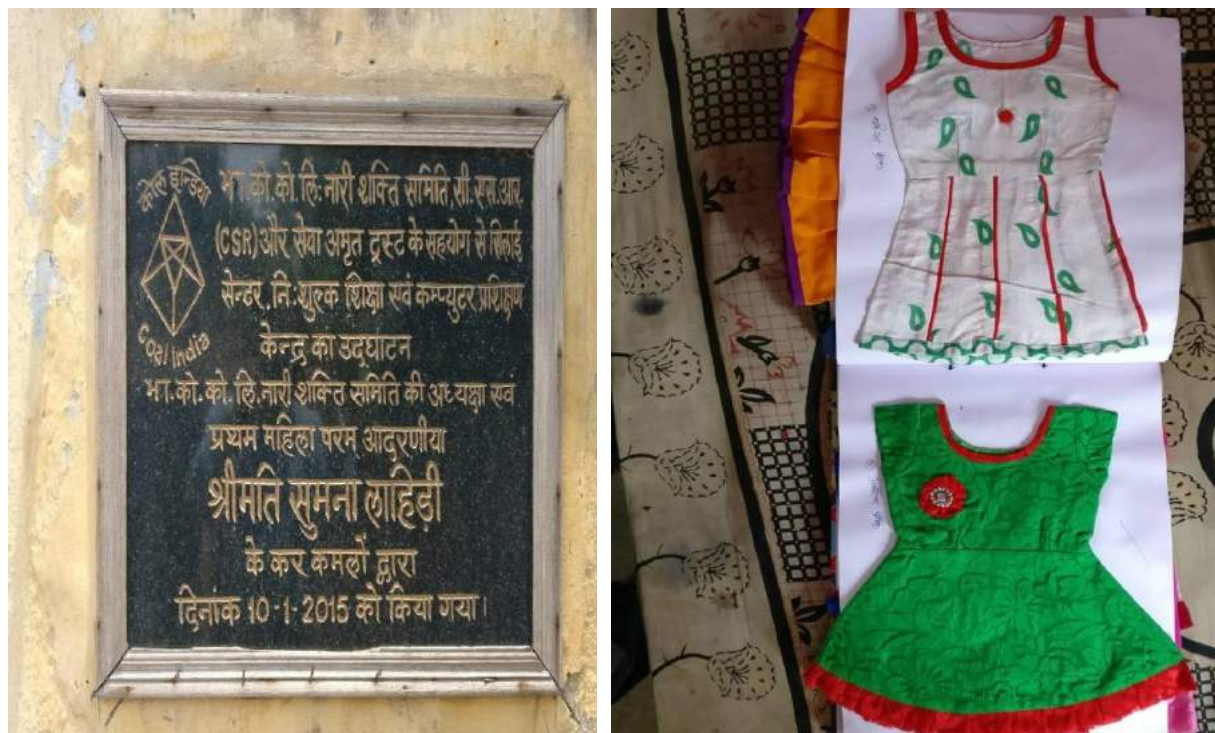 कोल इन्डिया
भा.को.को.लि.नारी शक्ति समिति सी.एस.आर.
(CSR) और सेवा अमृत ट्रस्ट के सहयोग से सिलाई
सेन्टर, नि:शुल्क शिक्षा एवं कम्प्युटर प्रशिक्षण
Coal India
केन्द्र का उद्घाटन
भा.को.को.लि.नारी शक्ति समिति की अध्यक्षा एवं
प्रथम महिला परम् आदरणीया
श्रीमति सुमना लाहिड़ी
के कर कमलों द्वारा
दिनांक 10-1-2015 को किया गया।